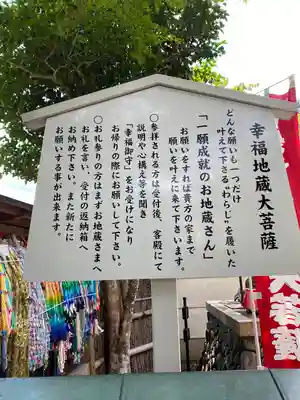 幸福地蔵大菩薩
どんな願いも一つだけ
叶えて下さる“わらじ”を履いた
「一願成就のお地蔵さん」
お願いをすれば貴方の家まで
願いを叶えに来て下さいます。
〇参拝される方は受付後、客殿にて
説明や心構え等を聞き
「幸福御守」をお受けになり
お帰りの際にお願いして下さい。
〇お礼参りの方はまずお地蔵さまへ
お礼を言い、受付の返納箱へ
お納め下さい。また新たに
お願いする事が出来ます。
大菩薩